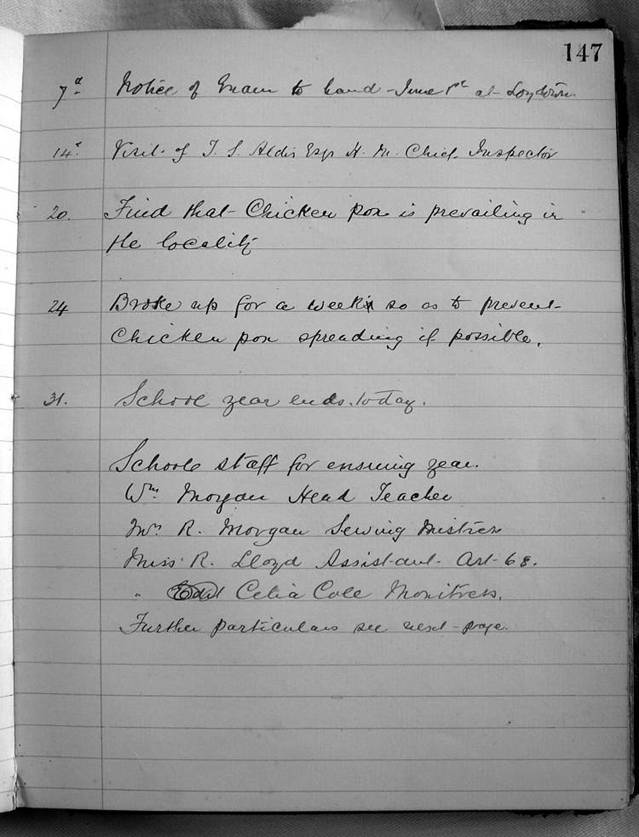 147
7th Notice of Exam to hand - June 1st at
14th Visit of T. S. Aldis Esqr H. M. Chief Inspector
20. Find that Chicken pox is prevailing in
the locality
24 Broke up for a week so as to prevent
Chicken pox spreading if possible.
31. School year ends today.
Schools staff for ensuing year.
Wm Morgan Head Teacher
Mrs R. Morgan Sewing Mistress
Miss R. Lloyd Assistant Art 68.
" Celia Cole Monitress.
Further particulars see next page.